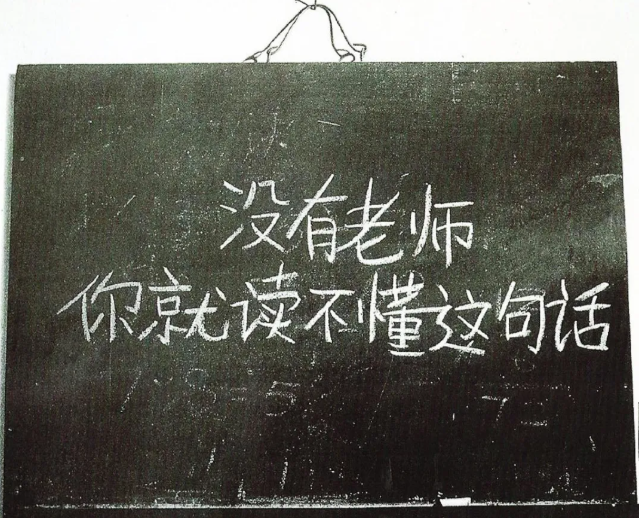 没有老师
你就读不懂这句话